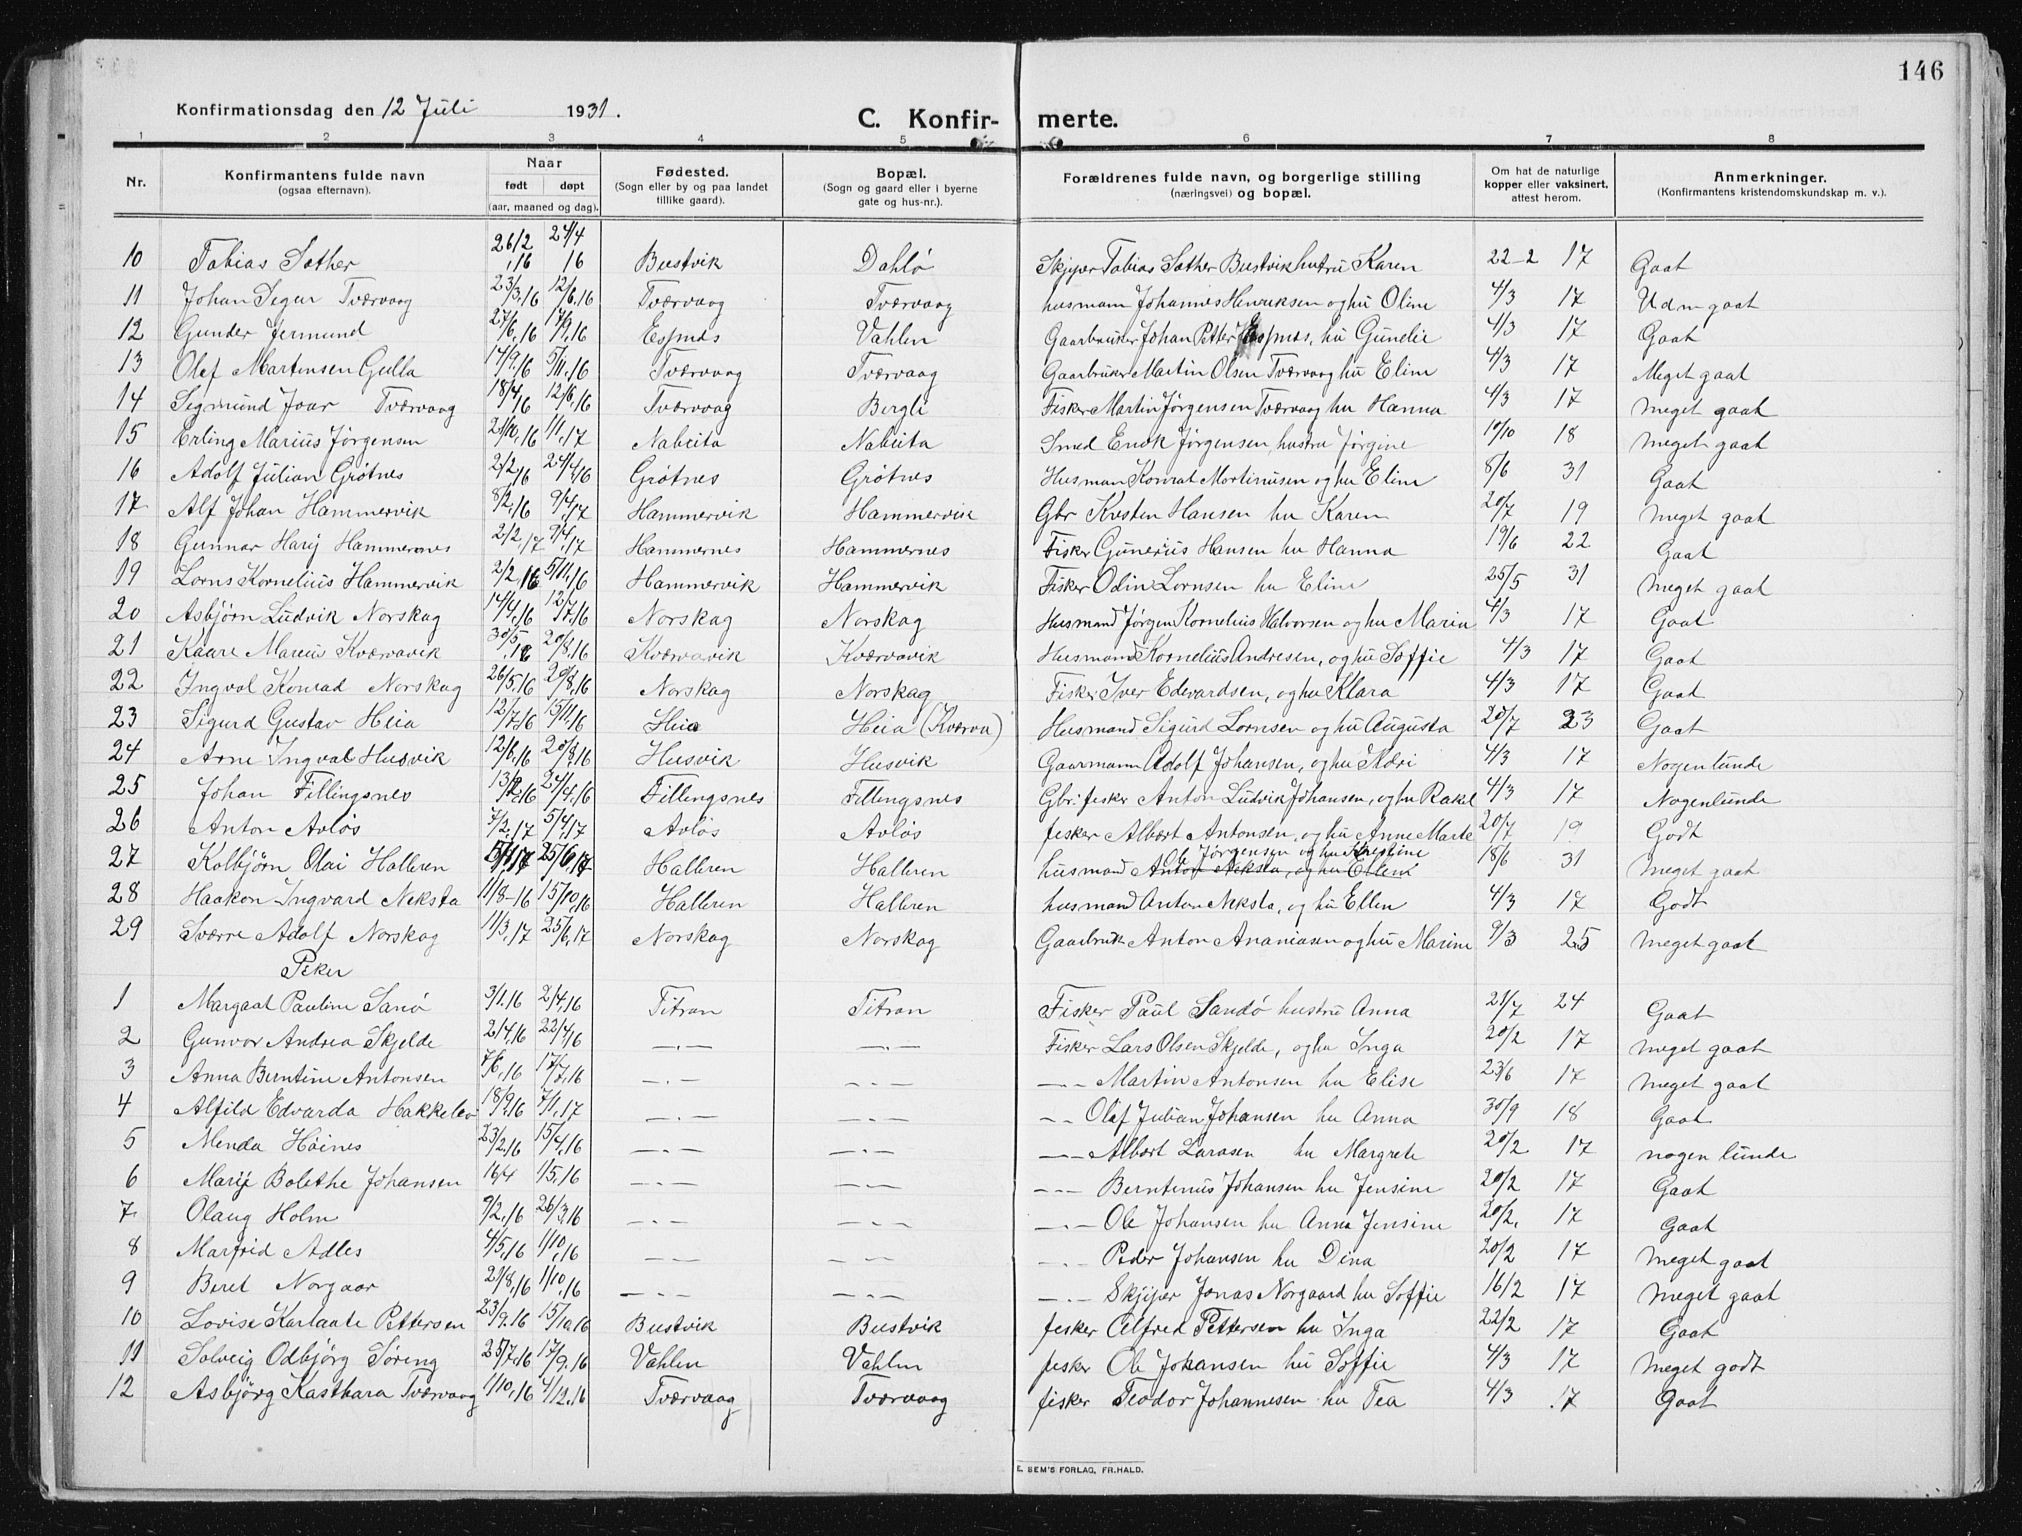 146
Konfirmationsdag den 12 Juli 1931.
C. Konfirmerte.
1 2 3 4 5 6 7 8
Nr. Konfirmantens fulde navn (ogsaa efternavn). Naar født døpt (aar, maaned og dag). Fødested. (Sogn eller by og paa landet tillike gaard). Bopæl. (Sogn og gaard eller i byerne gate og hus-nr.). Forældrenes fulde navn, og borgerlige stilling (næringsvei) og bopæl. Om hat de naturlige kopper eller vaksinert, attest herom. Anmerkninger. (Konfirmantens kristendomskundskap m. v.).
10 Tobias Sæther 26/2 16 24/4 16 Bustvik Dahlø Skipper Tobias Sæther Bustvik hustru Karen 22-2 17 Gaat
11 Johan Segur Tværvaag 23/3.16 12/6.16 Tværvaag Tværvaag husmann Johannes Henriksen og hu Oline 4/3 17 Udm gaat
12 Gunder Jermund 27/6.16 17/9.16 Espnes Vahlen Gaarbruker Johan Petter Espnes, hu Gunelie 4/3 17 Gaat
13 Olaf Martensen Gulla 14/9.16 5/11.16 Tværvaag Tværvaag Gaarbruker Martin Olsen Tværvaag hu Eline 4/3 17 Meget gaat
14 Sigmund Joar Tværvaag 18/4 16 12/6.16 Tværvaag Bergli Fisker Martin Jørgensen Tværvaag hu Hanna 4/3 17 meget gaat
15 Erling Marius Jørgensen 21/10.16 1/1.17 Nabeita Nabeita Smed Enok Jørgensen, hustru Jørgine 10/10 18 meget gaat
16 Adolf Julian Grøtnes 2/2.16 24/4.16 Grøtnes Grøtnes Husman Konrat Mortinusen og hu Eline 8/6 31 Gaat
17 Alf Johan Hammervik 8/2.16 9/4.17 Hammervik Hammervik Gbr Kresten Hansen hu Karen 20/7 19 meget gaat
18 Gunnar Harij Hammernes 2/2.17 9/4.17 Hammernes Hammernes Fisker Gunerius Hansen hu Hanna 19/6 22 Gaat
19 Lorns Kornelius Hammervik 2/2.16 5/11.16 Hammervik Hammervik Fisker Odin Lornsen hu Eline 25/5 31 meget gaat
20 Asbjørn Ludvik Norskag 14/4.16 12/7.16 Norskag Norskag Husmand Jørgen Kornelius Halvorsen og hu Maria 4/3 17 Gaat
21 Kaare Marius Kværvavik 30/5.16 20/8.16 Kværvavik Kværvavik Husmand Kornelius Andresen, og hu Soffie 4/3 17 Gaat
22 Ingval Konrad Norskag 26/5.16 20/8.16 Norskag Norskag Fisker Iver Edevardsen, og hu Klara 4/3 17 Gaat
23 Sigurd Gustav Heia 12/7.16 15/11.16 Heia Heia (Kværva) Husmand Sigurd Lornsen og hu Augusta 20/7 23 Gaat
24 Arne Ingval Husvik 12/6.16 20/8.16 Husvik Husvik Gaarmann Adolf Johansen, og hu Kari 4/3 17 Nogenlunde
25 Johan Fillingsnes 13/2.16 24/4.16 Fillingsnes Fillingsnes Gbr: fisker Anton Ludvik Johansen, og hu Rakel 4/3 17 Nogenlunde
26 Anton Avløs 7/2.17 5/4.17 Avløs Avløs fisker Albært Antonsen, og hu Anne Marte 20/7 19 Godt
27 Kolbjørn Olai Hallren 5/1.17 25/6.17 Hallren Hallren husmand Ole Jørgensen og hu Kristine Anton Neksta, og hu Ellen 18/6 31 meget gaat
28 Haakon Ingvard Neksta 11/8-16 15/10.16 Hallren Hallren husmand Anton Neksta, og hu Ellen 4/3 17 Godt
29 Sværre Adolf Norskag 11/3.17 25/6.17 Norskag Norskag Gaarbruk Anton Ananiasen og hu Marine 9/3 25 meget gaat
Piker
1 Margaat Pauline Sanø 3/1.16 2/4.16 Titran Titran Fisker Paul Sandø hustru Anna 21/7 24 Gaat
2 Gunvor Andrea Skjelde 2/4.16 22/4.16 —.— —.— Fisker Lars Olsen Skjelde, og hu Inga 20/2 17 meget gaat
3 Anna Berntine Antonsen 7/6.16 17/7.16 —.— —.— —.— Martin Antonsen hu Elise 23/6 17 meget gaat
4 Alfild Edvarda Hakkelev 18/9.16 7/1.17 —.— —.— —.— Olaf Julian Johansen hu Anna 30/9 18 Gaat
5 Menda Høines 23/2.16 15/4.16 —.— —.— —.— Albært Larssen hu Margrete 20/2 17 nogen lunde
6 Marij Bolethe Johansen 16/4 1/5.16 —.— —.— —.— Berntinus Johansen hu Jensine 20/2 17 Gaat
7 Olaug Holm 9/2.16 26/3.16 —.— —.— —.— Ole Johansen hu Anna Jensine 20/2. 17 Gaat
8 Marfrid Adles 4/5.16 1/10.16 —.— —.— —.— Peder Johansen hu Dina 20/2 17 meget gaat
9 Beret Norgaar 21/8.16 1/10.16 —.— —.— —.— Skjiper Jonas Norgaard hu Soffie 16/2 17 meget gaat
10 Lovise Karlaate Pettersen 23/9.16 15/10.16 Bustvik Bustvik fisker Alfred Pettersen hu Inga 22/2 17 Gaat
11 Solveig Odbjørg Søreng 25/7.16 17/9.16 Vahlen Vahln fisker Ole Johansen hu Soffie 4/3 17 meget godt
12 Asbjørg Kastbara Tværvaag 1/10.16 4/12.16 Tværvaag Tværvaag fisker Teodor Johannesen hu Tea 4/3 17 Gaat
E. SEM'S FORLAG, FR.HALD.